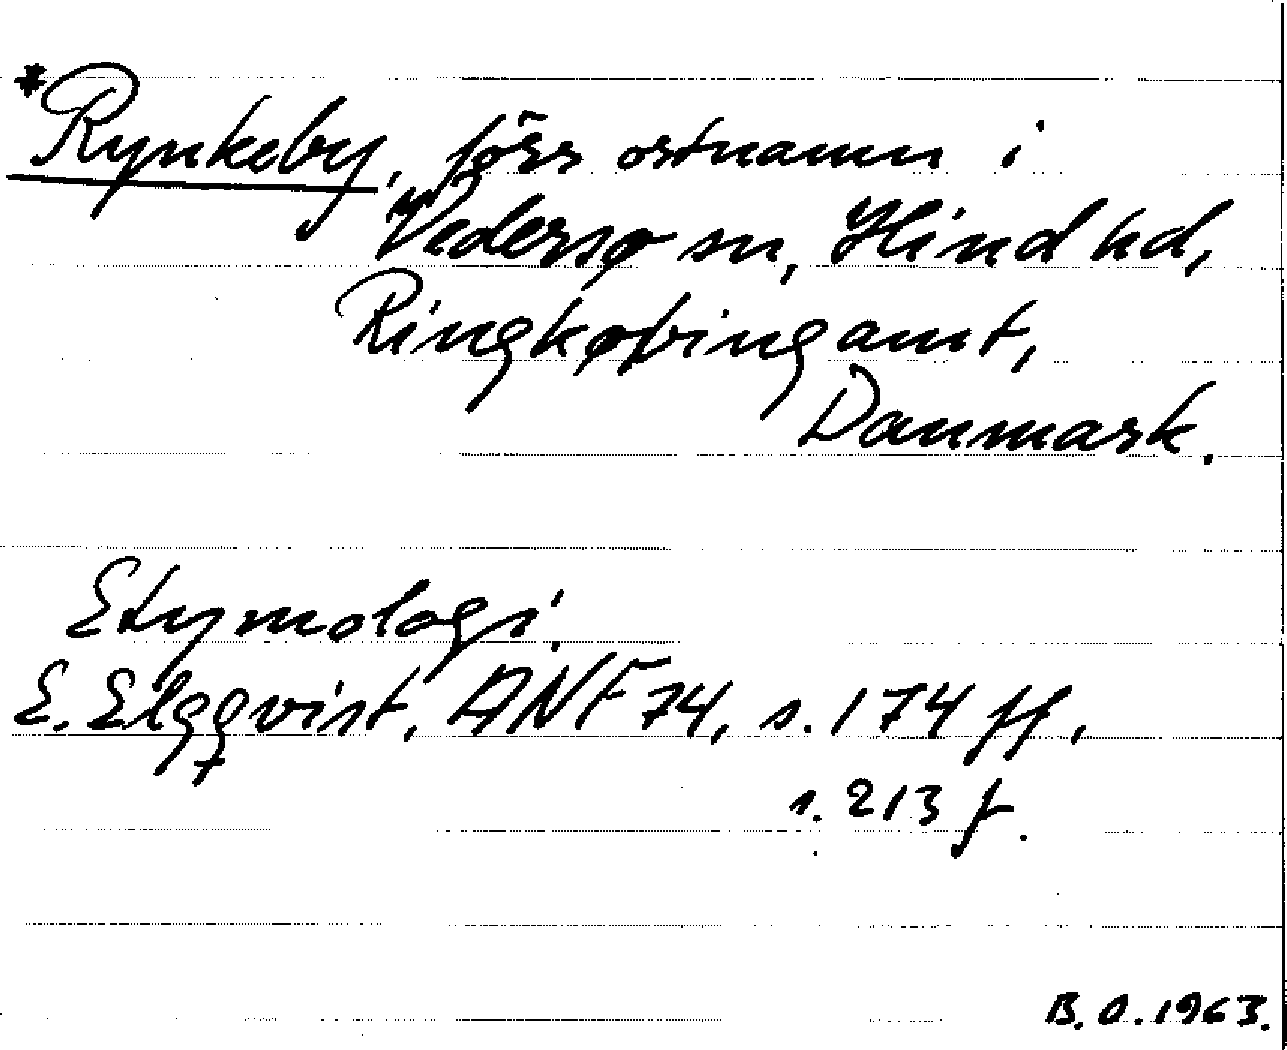 *Rynkeby, förs ortnamn i
Vedersø sn, Hind hd,
Ringkøbing amt,
Danmark.
Etymologi.
E. Elgqvist, ANF 74, s. 174 ff,
s. 213 f.
B.O. 1963.